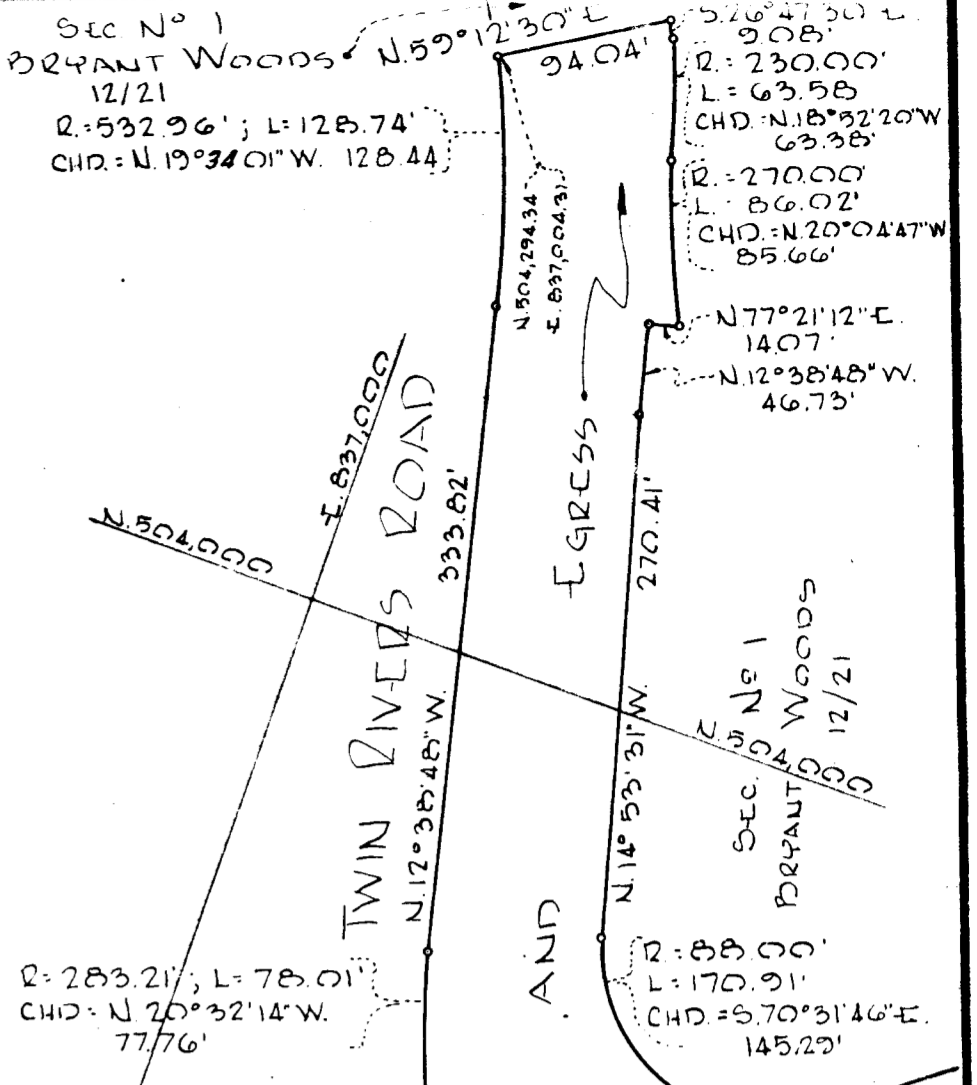 SEC Nº 1
BRYANT WOODS
12/21
N.59°12'30"E
94.04'
S.26°47'30"E.
9.08'
R.=532.96'; L=128.74'
CHD.=N.19°34'01"W. 128.44
R.=230.00'
L.=63.58
CHD.=N.18°52'20"W
63.38'
R.=270.00'
L. 86.02'
CHD.=N.20°04'47"W
85.66'
N.504,294.34
E.837,004.31
N.77°21'12"E.
14.07'
N.12°38'48"W.
46.73'
E.837,000
N.504,000
TWIN RIVERS ROAD
333.82'
N.12°38'48"W.
EGRESS
AND
270.41'
N.14°53'31"W.
SEC. Nº 1
BRYANT WOODS
12/21
N.504,000
R=283.21'; L=78.01'
CHD=N.20°32'14"W.
77.76'
R=88.00'
L=170.91'
CHD.=S.70°31'46"E.
145.29'